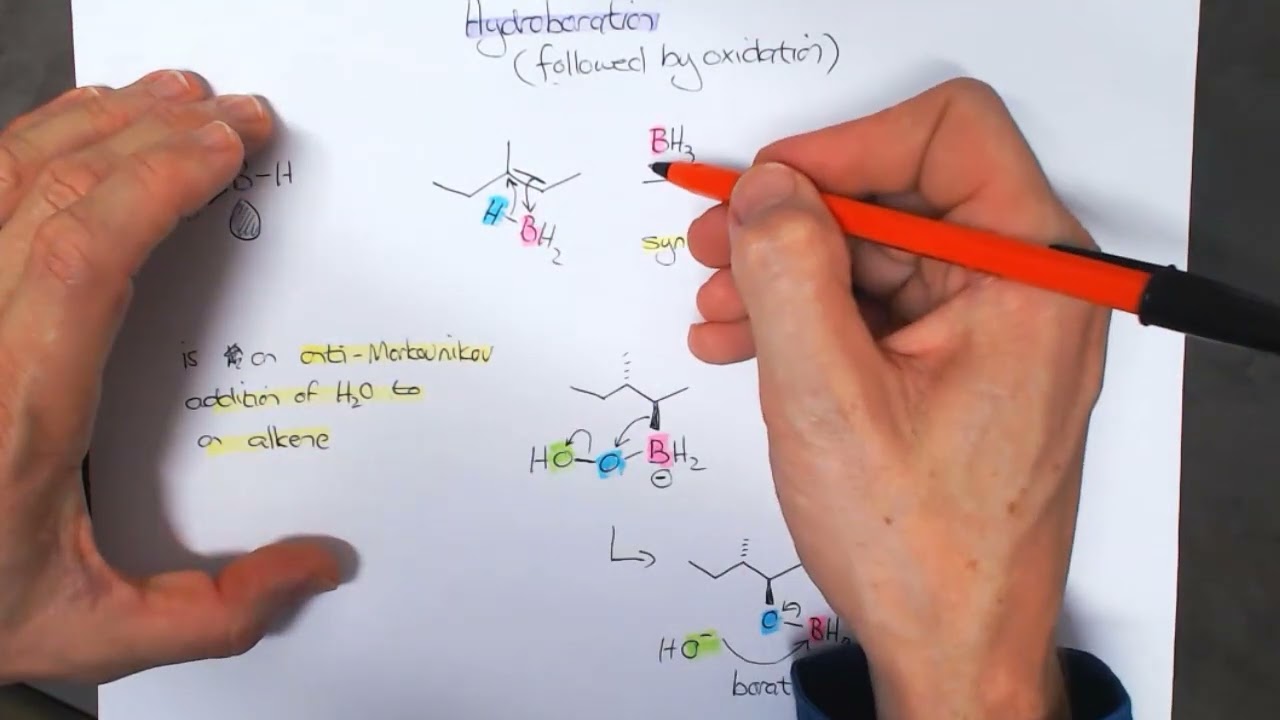 Hydroboration
(followed by oxidation)
BH3
B-H
H
BH2
syn
is an anti-Markovnikov
addition of H2O to
an alkene
HO-O-BH2
⊖
O-BH2
HO-
borat